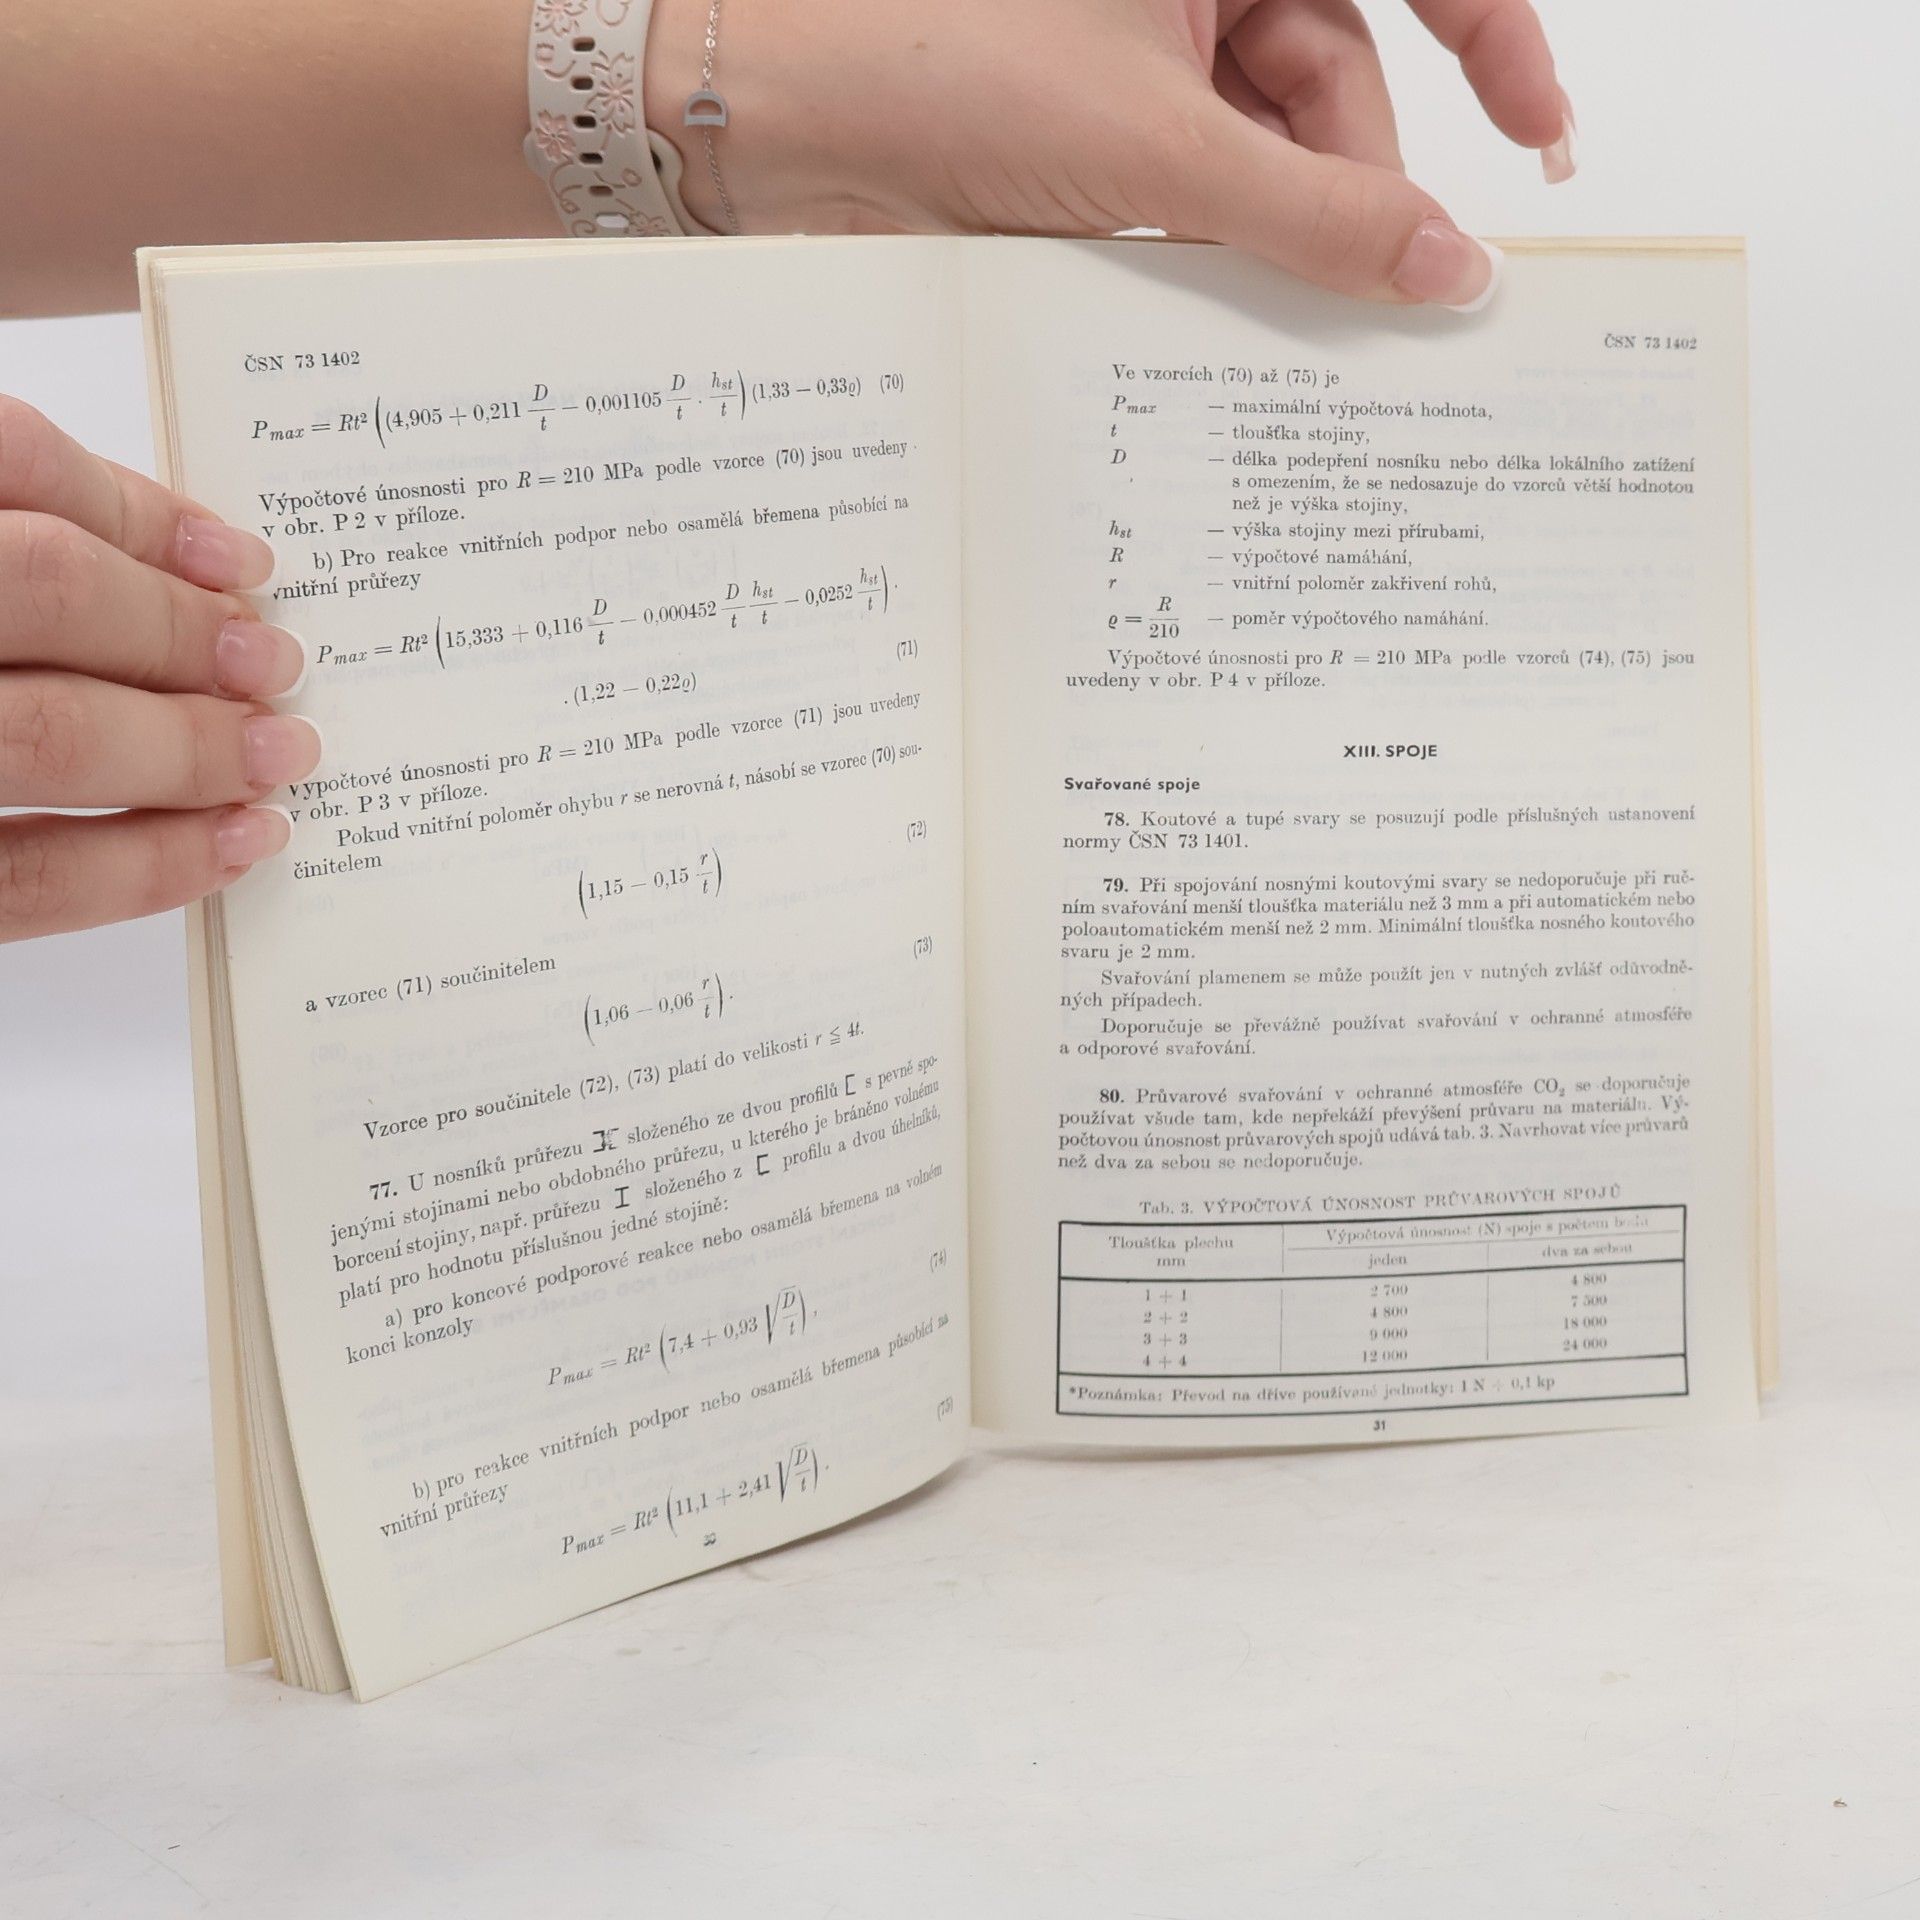 D
ČSN 73 1402
P_max = Rt² ((4,905 + 0,211 D/t − 0,001105 D/t · h_st/t) (1,33 − 0,33ϱ) (70)
Výpočtové únosnosti pro R = 210 MPa podle vzorce (70) jsou uvedeny
v obr. P 2 v příloze.
b) Pro reakce vnitřních podpor nebo osamělá břemena působící na
vnitřní průřezy
P_max = Rt² (15,333 + 0,116 D/t − 0,000452 D/t h_st/t − 0,0252 h_st/t) .
(71)
. (1,22 − 0,22ϱ)
Výpočtové únosnosti pro R = 210 MPa podle vzorce (71) jsou uvedeny
v obr. P 3 v příloze.
Pokud vnitřní poloměr ohybu r se nerovná t, násobí se vzorec (70) sou-
činitelem
(72)
(1,15 − 0,15 r/t)
a vzorec (71) součinitelem
(73)
(1,06 − 0,06 r/t) .
Vzorce pro součinitele (72), (73) platí do velikosti r ≦ 4t.
77. U nosníků průřezu ][ složeného ze dvou profilů [ s pevně spo-
jenými stojinami nebo obdobného průřezu, u kterého je bráněno volnému
borcení stojiny, např. průřezu I složeného z [ profilu a dvou úhelníků,
platí pro hodnotu příslušnou jedné stojině:
a) pro koncové podporové reakce nebo osamělá břemena na volném
konci konzoly
(74)
P_max = Rt² (7,4 + 0,93 √(D/t)) ,
b) pro reakce vnitřních podpor nebo osamělá břemena působící na
vnitřní průřezy
(75)
P_max = Rt² (11,1 + 2,41 √(D/t)) .
30
ČSN 73 1402
Ve vzorcích (70) až (75) je
P_max — maximální výpočtová hodnota,
t — tloušťka stojiny,
D — délka podepření nosníku nebo délka lokálního zatížení
s omezením, že se nedosazuje do vzorců větší hodnotou
než je výška stojiny,
h_st — výška stojiny mezi přírubami,
R — výpočtové namáhání,
r — vnitřní poloměr zakřivení rohů,
ϱ = R/210 — poměr výpočtového namáhání.
Výpočtové únosnosti pro R = 210 MPa podle vzorců (74), (75) jsou
uvedeny v obr. P 4 v příloze.
XIII. SPOJE
Svařované spoje
78. Koutové a tupé svary se posuzují podle příslušných ustanovení
normy ČSN 73 1401.
79. Při spojování nosnými koutovými svary se nedoporučuje při ruč-
ním svařování menší tloušťka materiálu než 3 mm a při automatickém nebo
poloautomatickém menší než 2 mm. Minimální tloušťka nosného koutového
svaru je 2 mm.
Svařování plamenem se může použít jen v nutných zvlášť odůvodně-
ných případech.
Doporučuje se převážně používat svařování v ochranné atmosféře
a odporové svařování.
80. Průvarové svařování v ochranné atmosféře CO₂ se doporučuje
používat všude tam, kde nepřekáží převýšení průvaru na materiálu. Vý-
počtovou únosnost průvarových spojů udává tab. 3. Navrhovat více průvarů
než dva za sebou se nedoporučuje.
Tab. 3. VÝPOČTOVÁ ÚNOSNOST PRŮVAROVÝCH SPOJŮ
Tloušťka plechu Výpočtová únosnost (N) spoje s počtem bodů
mm jeden dva za sebou
1 + 1 2 700 4 800
2 + 2 4 800 7 500
3 + 3 9 000 18 000
4 + 4 12 000 24 000
*Poznámka: Převod na dříve používané jednotky: 1 N ÷ 0,1 kp
31